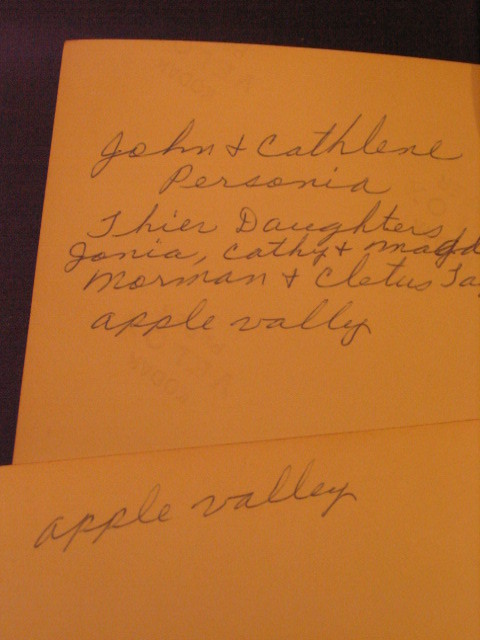 John & Cathlene
Personia
Thier Daughters
Jonia, Cathy &
Morman & Cletus
apple vally
apple valley
KODAK
KODAK